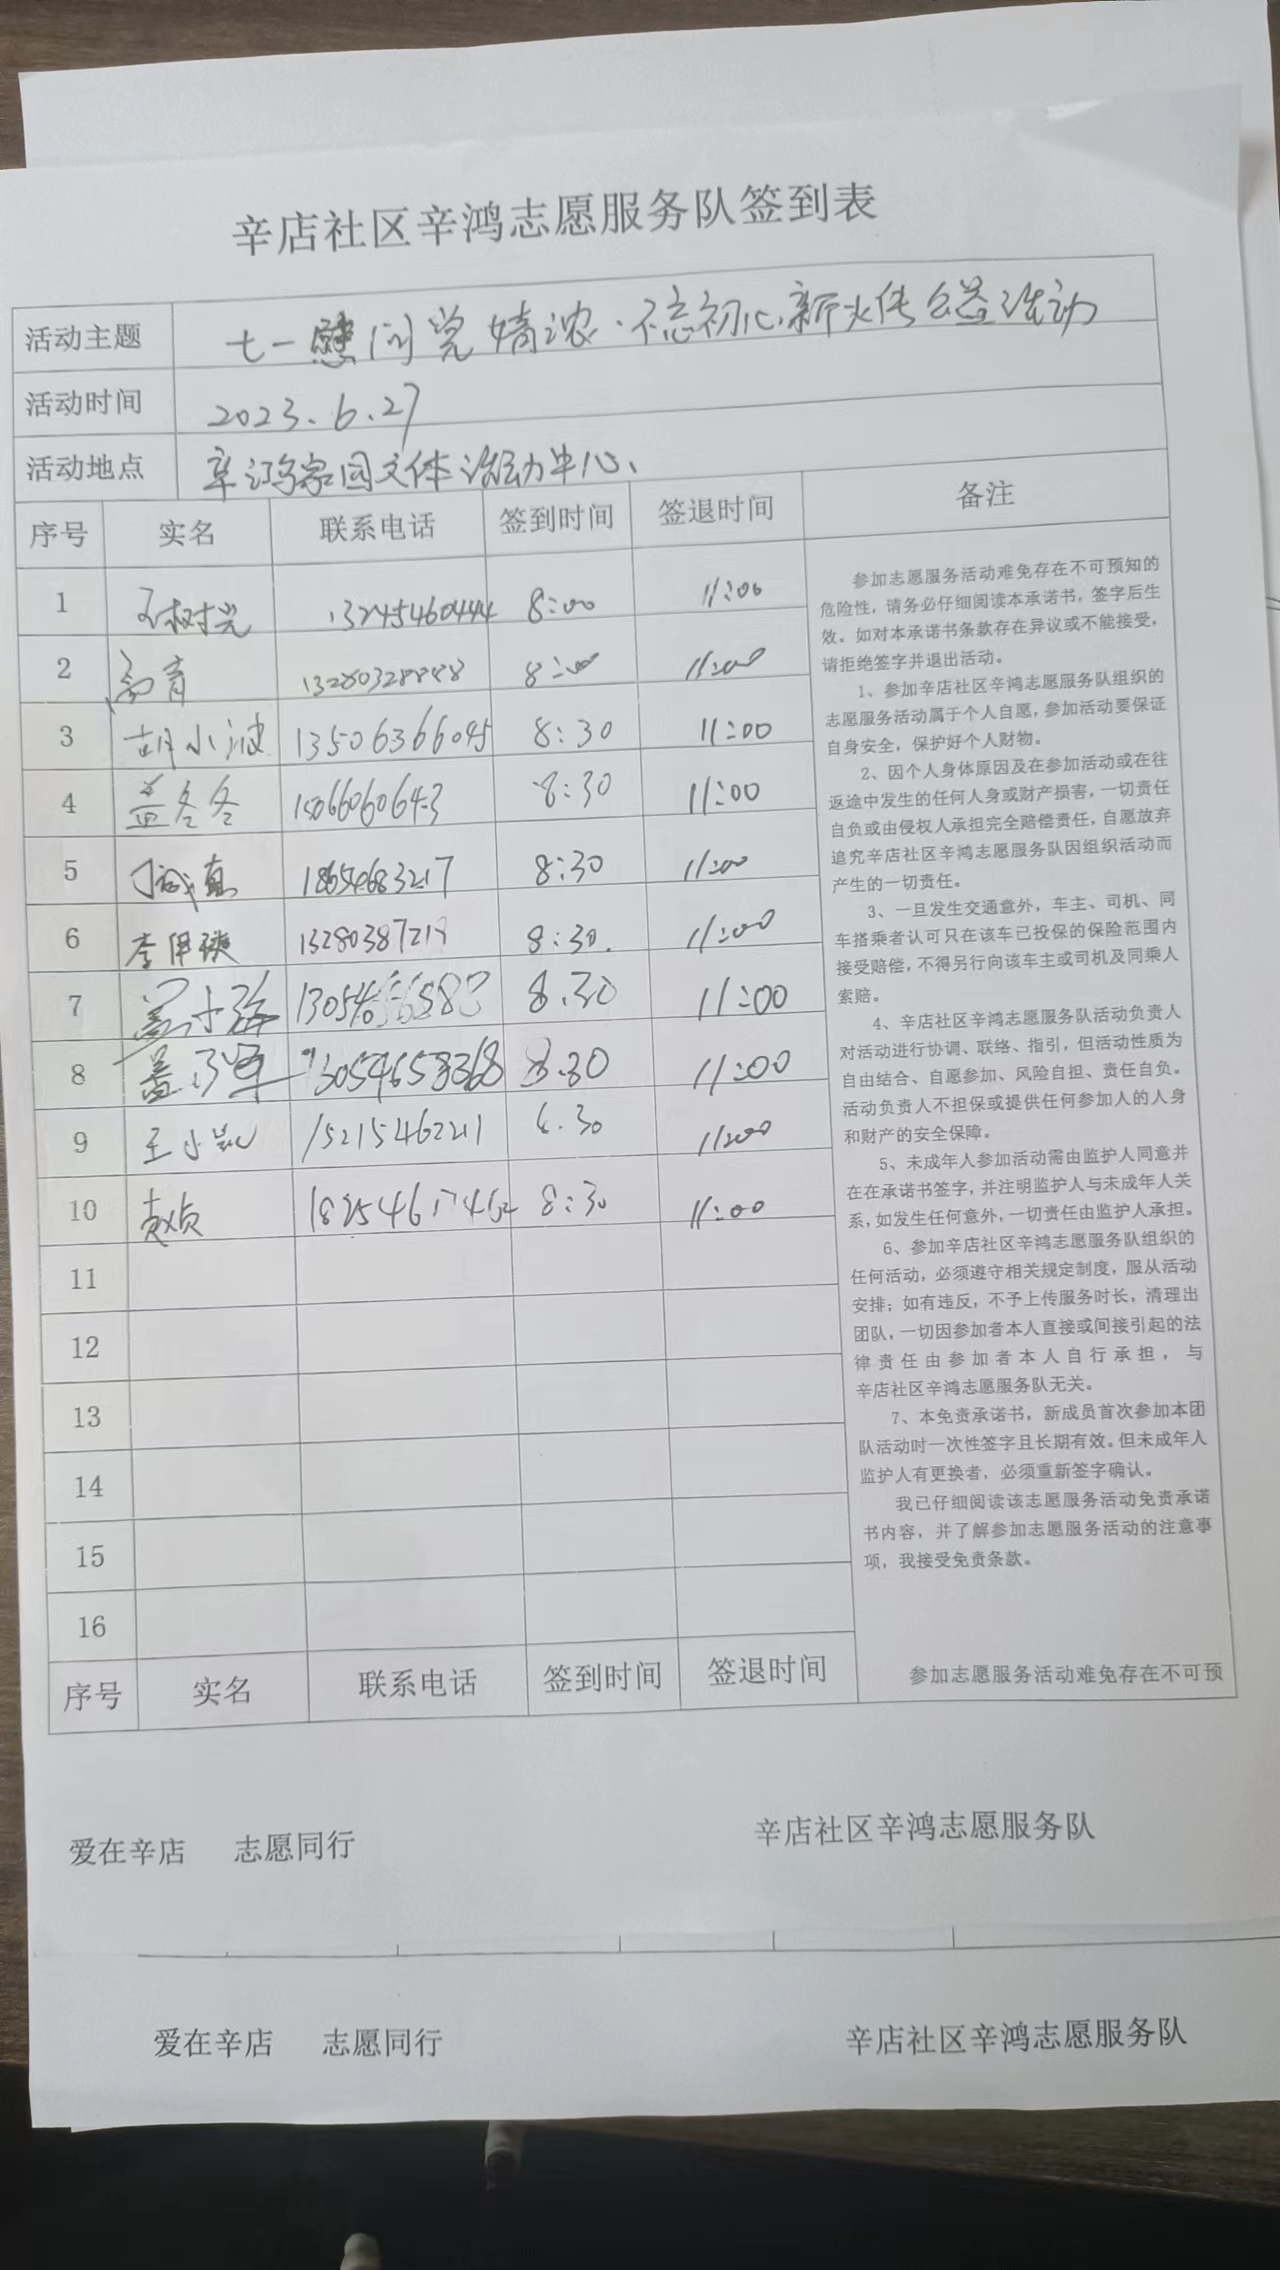 辛店社区辛鸿志愿服务队签到表
活动主题 七一慰问党情浓·不忘初心薪火传公益活动
活动时间 2023.6.27
活动地点 辛鸿家园文体活动中心、
序号 实名 联系电话 签到时间 签退时间 备注
1 13245460444 8:00 11:00
2 育 8:00 11:00
3 胡小波 13506366045 8:30 11:00
4 盖冬冬 15066060643 8:30 11:00
5 18654683217 8:30 11:00
6 李 8:30. 11:00
7 8.30 11:00
8 13054658368 8.30 11:00
9 王小凯 15215462211 8.30 11:00
10 赵贞 8:30 11:00
11
12
13
14
15
16
序号 实名 联系电话 签到时间 签退时间
参加志愿服务活动难免存在不可预知的
危险性，请务必仔细阅读本承诺书，签字后生
效。如对本承诺书条款存在异议或不能接受，
请拒绝签字并退出活动。
1、参加辛店社区辛鸿志愿服务队组织的
志愿服务活动属于个人自愿，参加活动要保证
自身安全，保护好个人财物。
2、因个人身体原因及在参加活动或在往
返途中发生的任何人身或财产损害，一切责任
自负或由侵权人承担完全赔偿责任，自愿放弃
追究辛店社区辛鸿志愿服务队因组织活动而
产生的一切责任。
3、一旦发生交通意外，车主、司机、同
车搭乘者认可只在该车已投保的保险范围内
接受赔偿，不得另行向该车主或司机及同乘人
索赔。
4、辛店社区辛鸿志愿服务队活动负责人
对活动进行协调、联络、指引，但活动性质为
自由结合、自愿参加、风险自担、责任自负。
活动负责人不担保或提供任何参加人的人身
和财产的安全保障。
5、未成年人参加活动需由监护人同意并
在在承诺书签字，并注明监护人与未成年人关
系，如发生任何意外，一切责任由监护人承担。
6、参加辛店社区辛鸿志愿服务队组织的
任何活动，必须遵守相关规定制度，服从活动
安排；如有违反，不予上传服务时长，清理出
团队，一切因参加者本人直接或间接引起的法
律责任由参加者本人自行承担，与
辛店社区辛鸿志愿服务队无关。
7、本免责承诺书，新成员首次参加本团
队活动时一次性签字且长期有效。但未成年人
监护人有更换者，必须重新签字确认。
我已仔细阅读该志愿服务活动免责承诺
书内容，并了解参加志愿服务活动的注意事
项，我接受免责条款。
参加志愿服务活动难免存在不可预
爱在辛店 志愿同行 辛店社区辛鸿志愿服务队
爱在辛店 志愿同行 辛店社区辛鸿志愿服务队